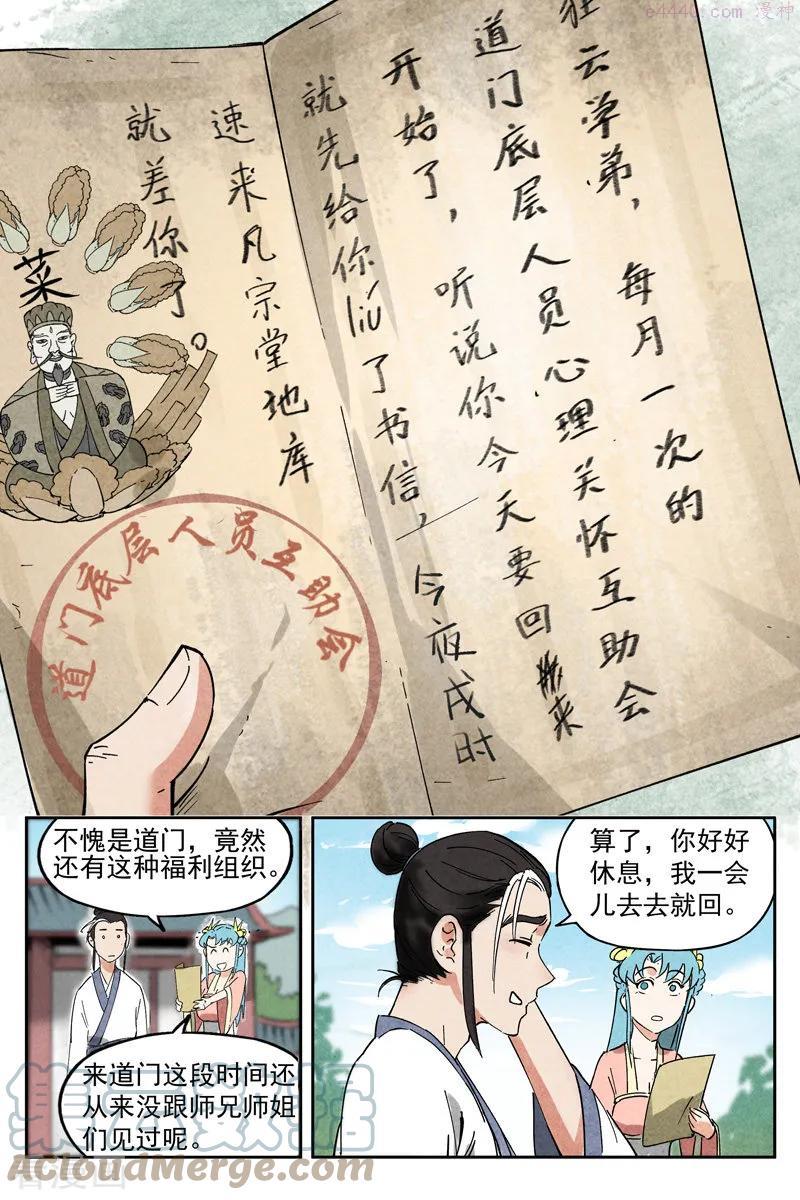 e4440.com 漫神
狂云学弟，每月一次的
道门底层人员心理关怀互助会
开始了，听说你今天要回来
就先给你liú了书信，今夜戌时
速来凡宗堂地库
就差你了。
菜
道门底层人员互助会
不愧是道门，竟然
还有这种福利组织。
来道门这段时间还
从来没跟师兄师姐
们见过呢。
算了，你好好
休息，我一会
儿去去就回。
AcloudMerge.com